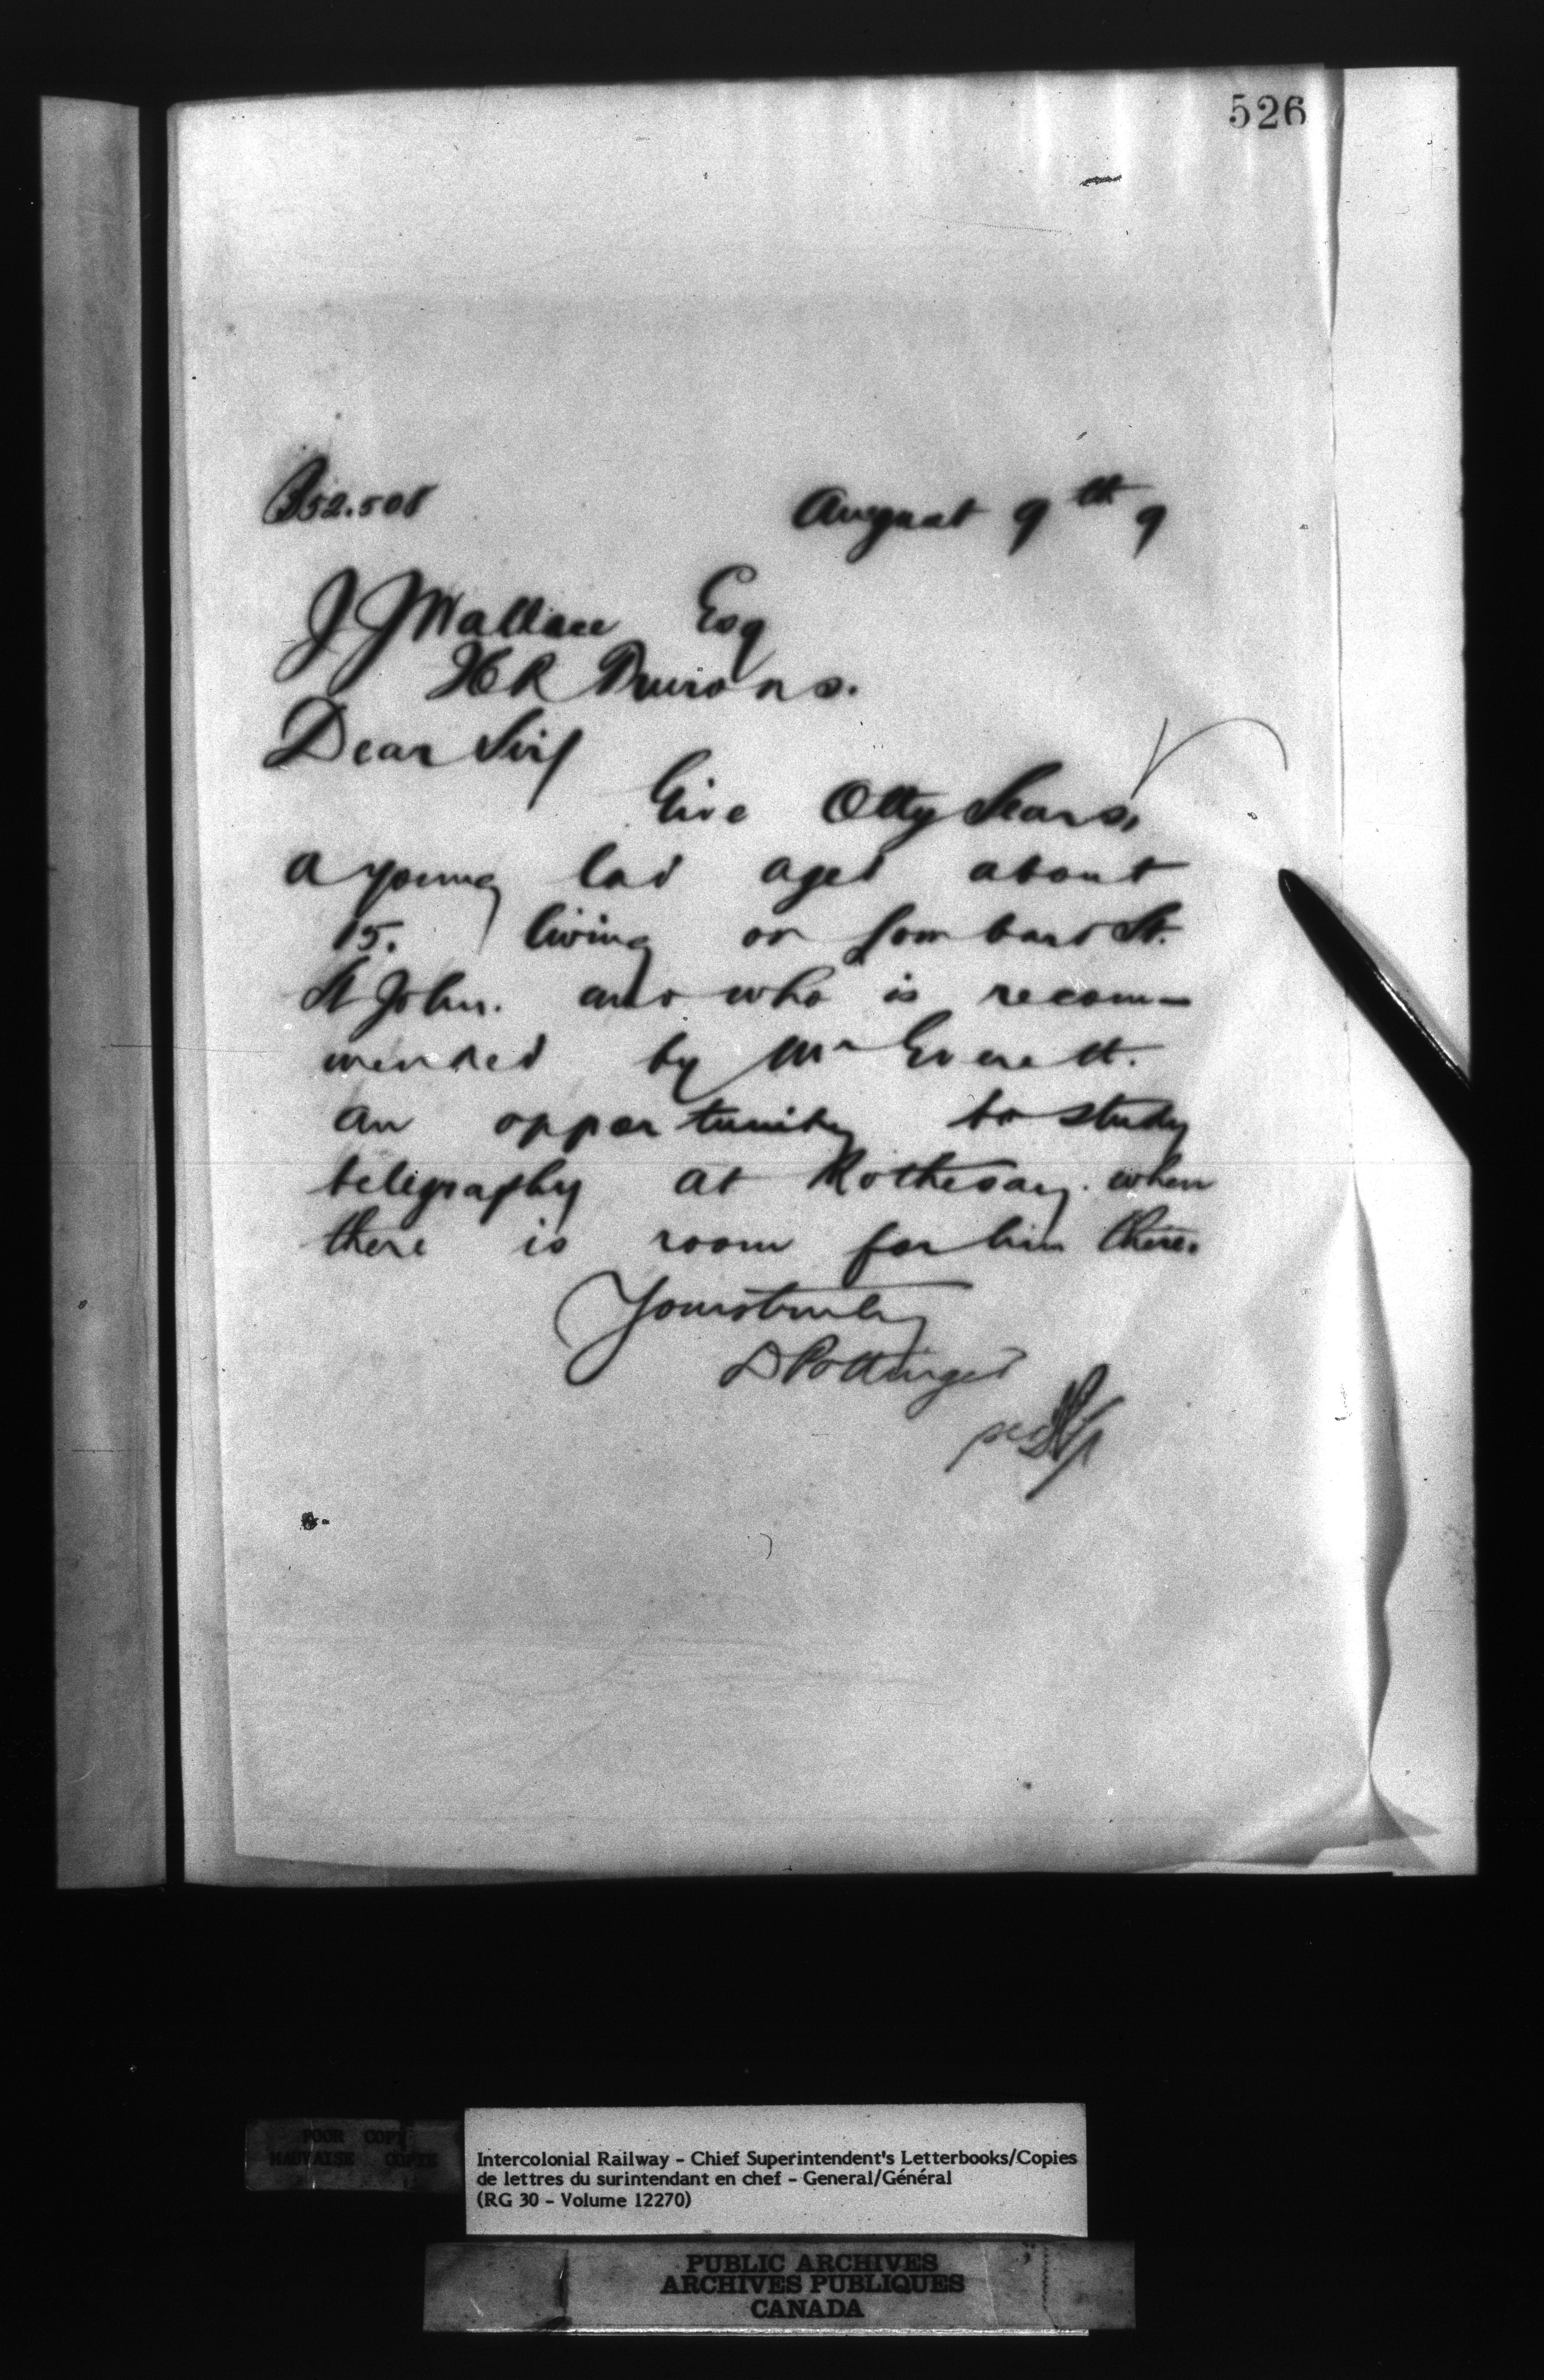 526
B52.508 August 9th 9
J J Wallace Esq
Dear Sir/
Give Otty Sears,
a young lad aged about
15. living on Lombard St.
St John. and who is recom-
mended by Mr Everett.
an opportunity to study
telegraphy at Rothesay. when
there is room for him there.
Yours truly
D Pottinger
per
POOR COPY
MAUVAISE COPIE
Intercolonial Railway - Chief Superintendent's Letterbooks/Copies
de lettres du surintendant en chef - General/Général
(RG 30 - Volume 12270)
PUBLIC ARCHIVES
ARCHIVES PUBLIQUES
CANADA